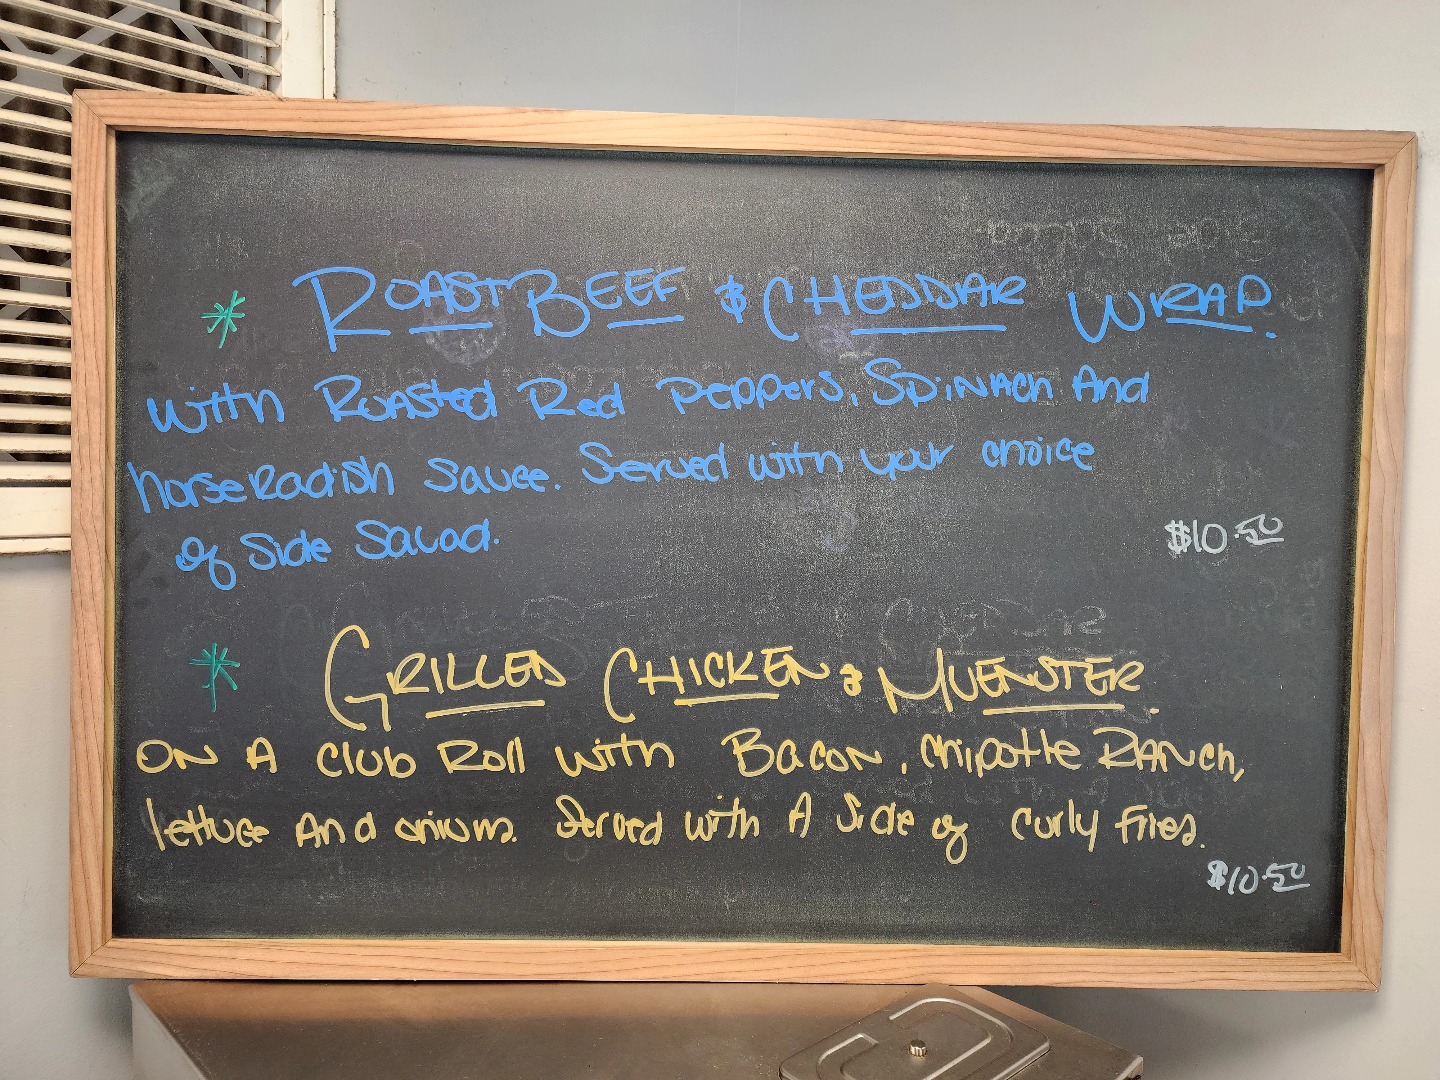 * ROAST BEEF & CHEDDAR WRAP.
with Roasted Red Peppers, Spinach And
horseradish sauce. Served with your choice
of Side Salad.
$10.50
* GRILLED CHICKEN & MUENSTER.
ON A Club Roll with Bacon, Chipotle Ranch,
lettuce And onions. Served with A Side of Curly Fries.
$10.50